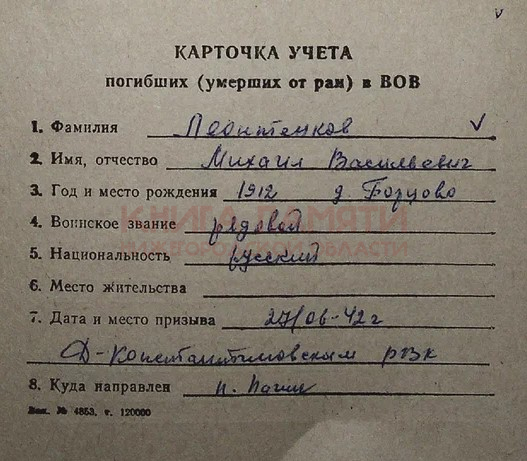 КАРТОЧКА УЧЕТА
погибших (умерших от ран) в ВОВ
1. Фамилия Леонтенков
2. Имя, отчество Михаил Васильевич
3. Год и место рождения 1912 д. Борцово
КНИГА ПАМЯТИ
4. Воинское звание рядовой
НИЖЕГОРОДСКОЙ ОБЛАСТИ
5. Национальность русский
6. Место жительства
7. Дата и место призыва 27/06-42г
Д-Константиновским рвк
8. Куда направлен
Зак. № 4853, т. 120000